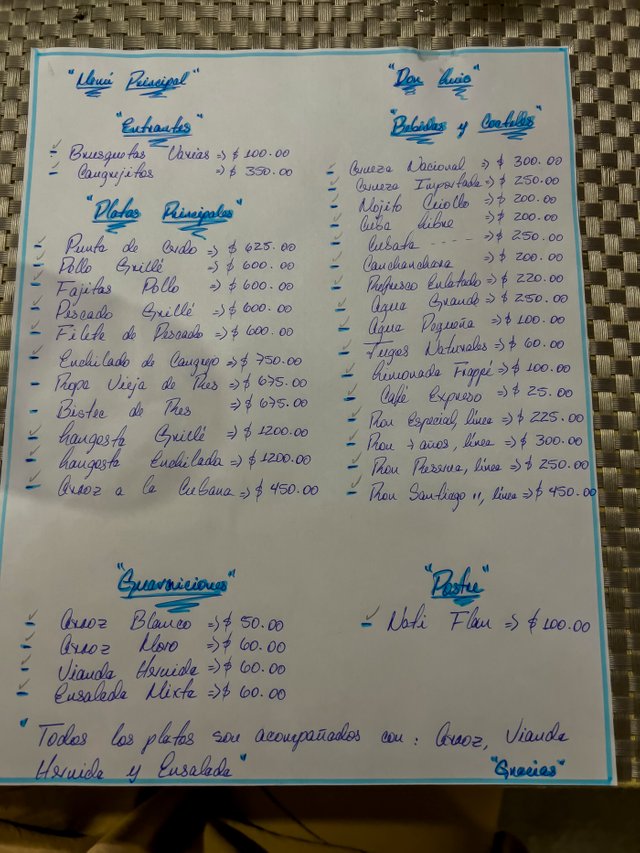 "Menú Principal"
"Entrantes"
- Brusquetas Varias => $ 100.00
- Cangrejitos => $ 350.00
"Platos Principales"
- Punta de Cerdo => $ 625.00
- Pollo Grillé => $ 600.00
- Fajitas Pollo => $ 600.00
- Pescado Grillé => $ 600.00
- Filete de Pescado => $ 600.00
- Enchilado de Cangrejo => $ 750.00
- Ropa Vieja de Res => $ 675.00
- Bistec de Res => $ 675.00
- Langosta Grillé => $ 1200.00
- Langosta Enchilada => $ 1200.00
- Arroz a la Cubana => $ 450.00
"Guarniciones"
- Arroz Blanco => $ 50.00
- Arroz Moro => $ 60.00
- Vianda Hervida => $ 60.00
- Ensalada Mixta => $ 60.00
"Don
"Bebidas y Cocteles"
- Cerveza Nacional => $ 300.00
- Cerveza Importada => $ 250.00
- Mojito Criollo => $ 200.00
- Cuba Libre => $ 200.00
- Cubata ---- => $ 250.00
- Canchanchara => $ 200.00
- Refresco Enlatado => $ 220.00
- Agua Grande => $ 250.00
- Agua Pequeña => $ 100.00
- Jugos Naturales => $ 60.00
- Limonada Frappé => $ 100.00
- Café Expreso => $ 25.00
- Ron Especial, línea => $ 225.00
- Ron 7 años, línea => $ 300.00
- Ron Reserva, línea => $ 250.00
- Ron Santiago 11, línea => $ 450.00
"Postre"
- Nati Flan => $ 100.00
"Todos los platos son acompañados con: Arroz, Vianda
Hervida y Ensalada"
"Gracias"